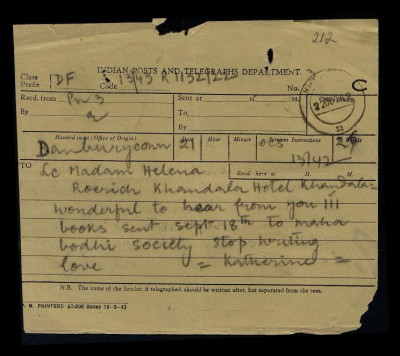 212
INDIAN POSTS AND TELEGRAPHS DEPARTMENT.
Class Prefix DF 13/45 R 1132/22
Code No. 3 C
Recd. from Pm 3 Sent at H. M. Office Stamp
By 2 To,
By
Handed in at (Office of Origin) Hour Minute Service Instructions
Danburyconn 21
13/42
TO Lc Madam Helena Recd. here at H. M.
Roerich Khandala Hotel Khandala =
wonderful to hear from you III
books sent sept 18th to maha
bodhi society stop writing
love = Katherine =
N.B. The name of the Sender, if telegraphed, should be written after, but separated from the text.
P. M. PRINTERS